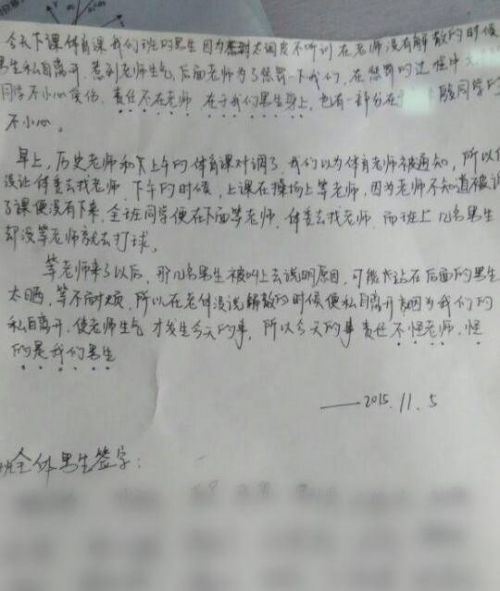 今天下课体育课我们班的男生因为太调皮不听训在老师没有解散的时候
男生私自离开.惹到老师生气,后面老师为了惩罚一下我们,在惩罚的过程中
同学不小心受伤,责任不在老师 在于我们男生身上,也有一部分在 骏同学的
不小心。
早上,历史老师和下午的体育课对调了,我们以为体育老师被通知,所以
没让体委去找老师.下午的时候,上课在操场上等老师,因为老师不知道被调
了课便没有下来.全班同学便在下面等老师.体委去找老师.而班上几名男生
却没等老师就去打球。
等老师来了以后,那几名男生被叫上去说明原因,可能站在后面的男生
太晒,等不耐烦,所以在老师没说解散的时候便私自离开 因为我们的
私自离开,使老师生气 才发生今天的事,所以今天的事责任不怪老师,怪
的是我们男生
——2015.11.5
班全体男生签字: